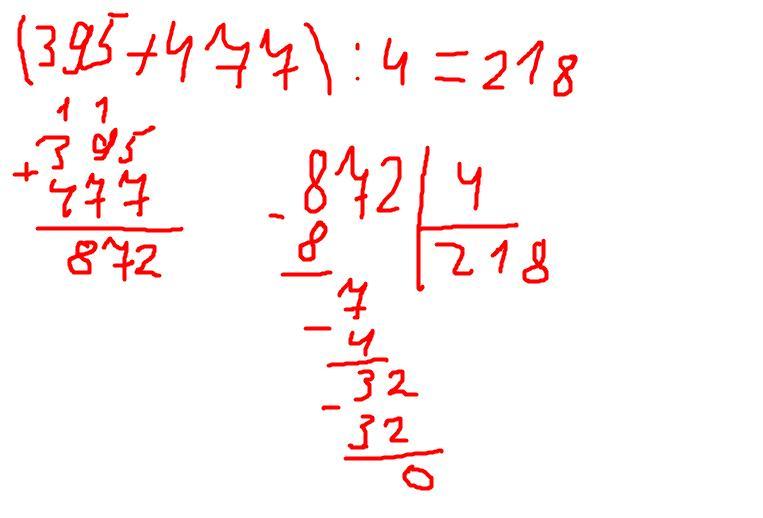 (395+477):4=218
1 1
395
+
477
872
872 | 4
-
8
218
7
-
4
32
-
32
0